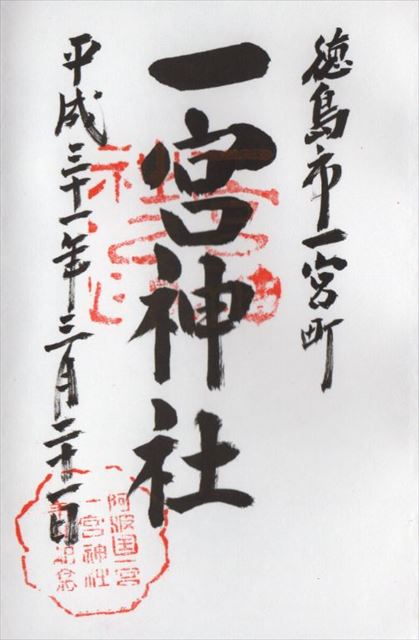 徳島市一宮町
一宮神社
平成三十一年三月二十一日
阿波国一宮
一宮神社